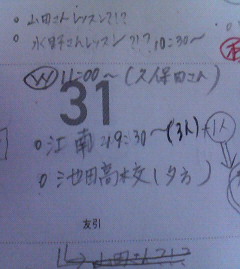 ○ 山田さんレッスン?!?
○ 水野さんレッスン?!? 10:30〜
Ⓦ 11:00〜(久保田さん)
31
○ 江南 19:30〜(3人)+1人
○ 池田高校(夕方)
友引